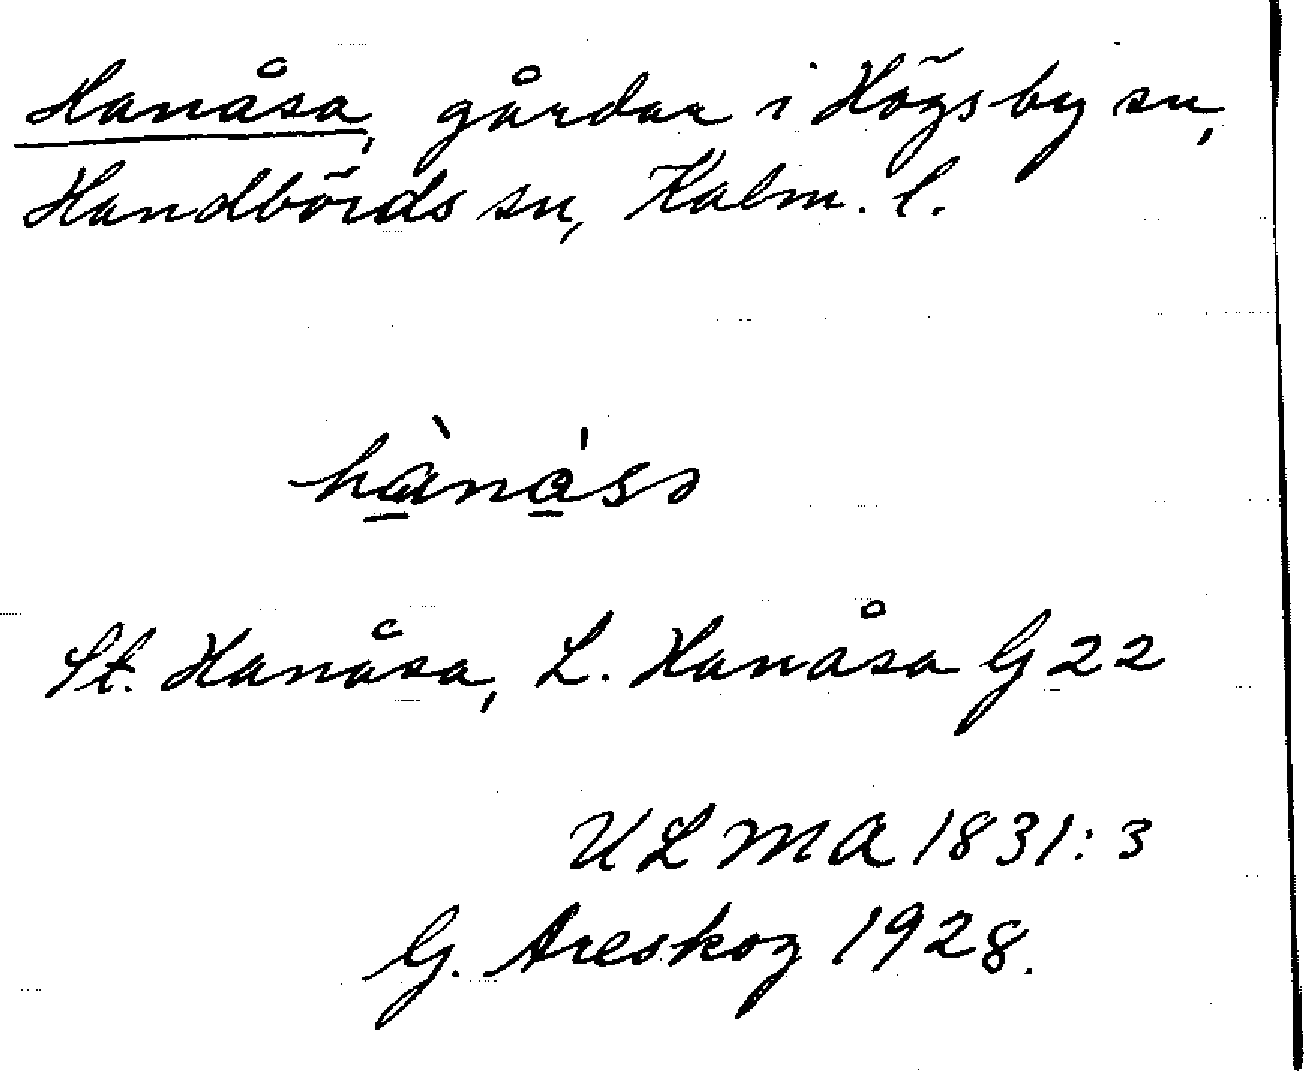 Hanåsa, gårdar i Högsby sn,
Handbörds sn, Kalm. l.
hà̲nǻ̲sɔ
St. Hanåsa, L. Hanåsa G 22
ULMA 1831:3
G. Areskog 1928.